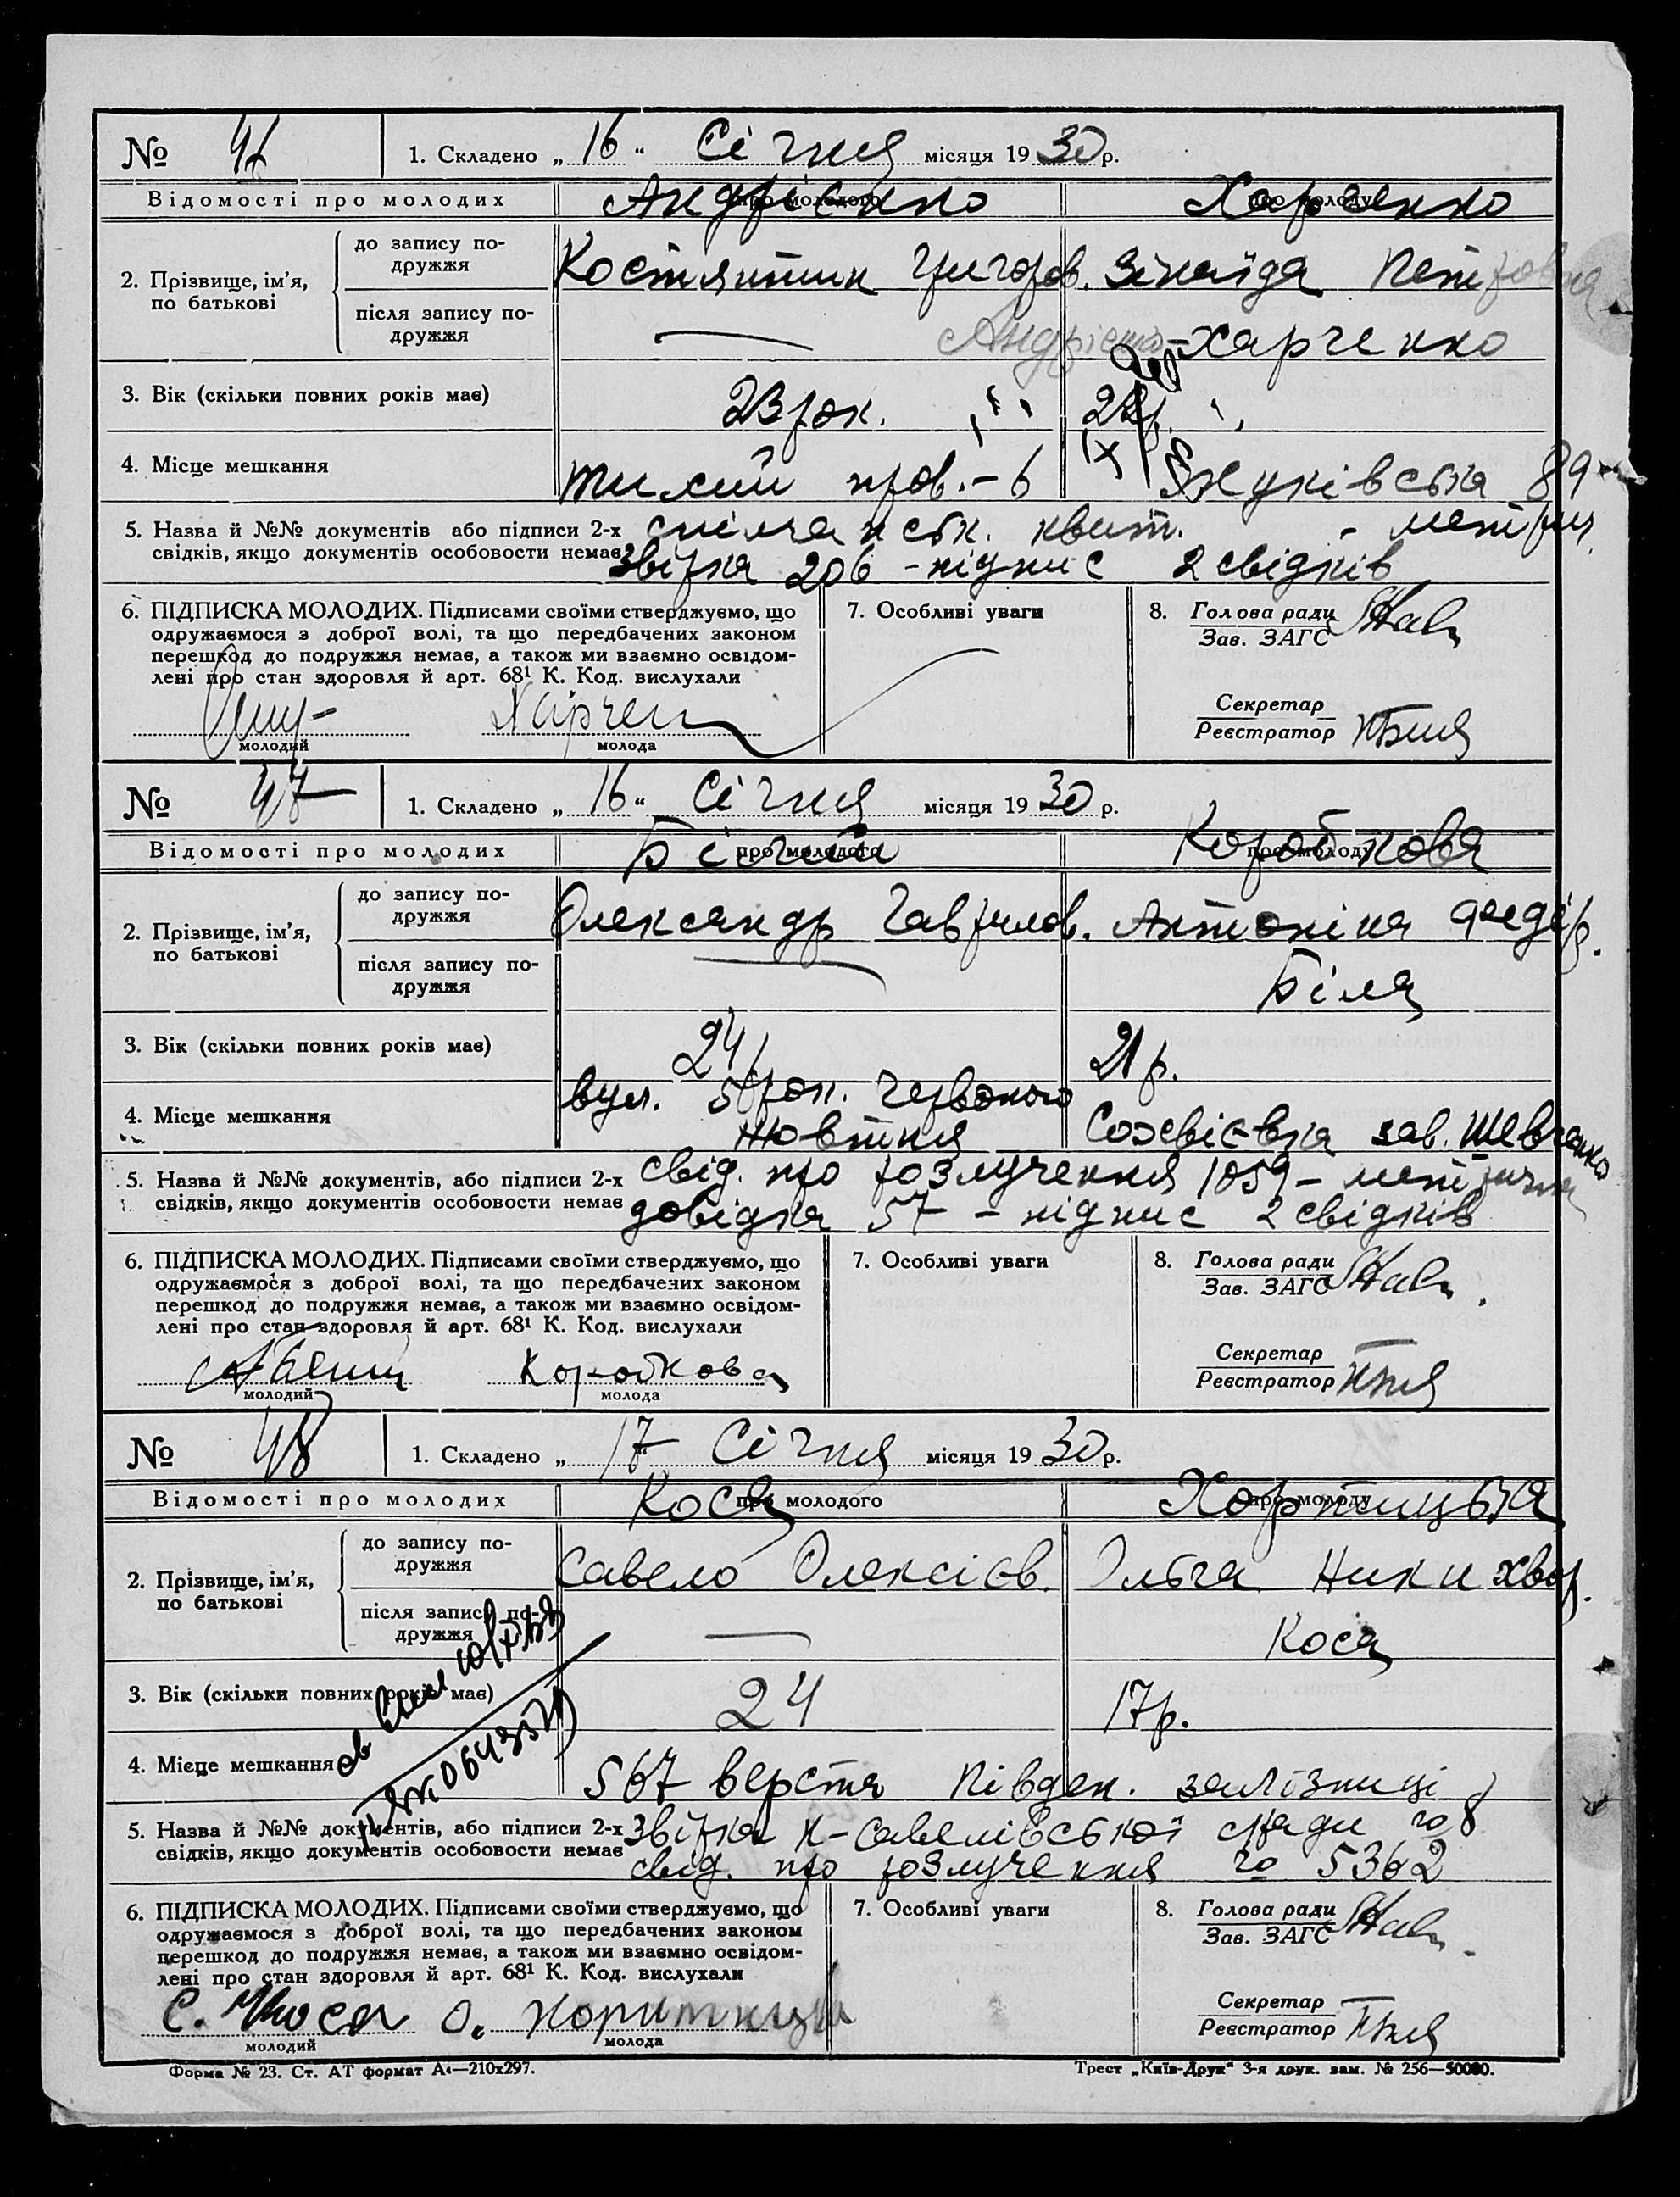 № 46 1. Складено „16“ Січня місяця 1930 р.
Відомості про молодих про молодого Андрієнко про молоду Харченко
2. Прізвище, ім’я, по батькові
до запису подружжя Костянтин Григоров. Зінаїда Петровна
після запису подружжя — Андрієнко-Харченко
3. Вік (скільки повних років має) 23 рок. 22 р.
4. Місце мешкання Тихий пров. – 6 89
5. Назва й №№ документів або підписи 2-х спілчанськ. квит. – метрич.
свідків, якщо документів особовости немає звірка 206 – підпис 2 свідків
6. ПІДПИСКА МОЛОДИХ. Підписами своїми стверджуємо, що
одружаємося з доброї волі, та що передбачених законом
перешкод до подружжя немає, а також ми взаємно освідом-
лені про стан здоров‘я й арт. 68¹ К. Код. вислухали
молодий Харчен молода
7. Особливі уваги
8. Голова ради
Зав. ЗАГС
Секретар
Реєстратор
№ 47 1. Складено „16“ Січня місяця 1930 р.
Відомості про молодих про молодого Білий про молоду Короткова
2. Прізвище, ім’я, по батькові
до запису подружжя Олександр Гаврилов. Антоніна Федір.
після запису подружжя — Біла
3. Вік (скільки повних років має) 24 р. 21 р.
4. Місце мешкання вул. 5 рок. Червоного
Жовтня зав. Шевченко
5. Назва й №№ документів, або підписи 2-х свід. про розлучення 1059 – метрична
свідків, якщо документів особовости немає довідка 57 – підпис 2 свідків
6. ПІДПИСКА МОЛОДИХ. Підписами своїми стверджуємо, що
одружаємося з доброї волі, та що передбачених законом
перешкод до подружжя немає, а також ми взаємно освідом-
лені про стан здоровля й арт. 68¹ К. Код. вислухали
молодий Короткова молода
7. Особливі уваги
8. Голова ради
Зав. ЗАГС
Секретар
Реєстратор
№ 48 1. Складено „17“ Січня місяця 1930 р.
Відомості про молодих про молодого Коса про молоду
2. Прізвище, ім’я, по батькові
до запису подружжя Савело Олексієв. Ольга Никихвор.
після запису подружжя — Коса
3. Вік (скільки повних років має) 24 17 р.
4. Місце мешкання 567 верста Південн. залізниці
5. Назва й №№ документів, або підписи 2-х звірка Н-Савелівської сради го 8
свідків, якщо документів особовости немає свід. про розлучення го 5362
6. ПІДПИСКА МОЛОДИХ. Підписами своїми стверджуємо, що
одружаємося з доброї волі, та що передбачених законом
перешкод до подружжя немає, а також ми взаємно освідом-
лені про стан здоровля й арт. 68¹ К. Код. вислухали
С. Коса молодий О. молода
7. Особливі уваги
8. Голова ради
Зав. ЗАГС
Секретар
Реєстратор
Форма № 23. Ст. АТ формат А4—210x297. Трест „Київ-Друк“ 3-я друк. зам. № 256—50000.